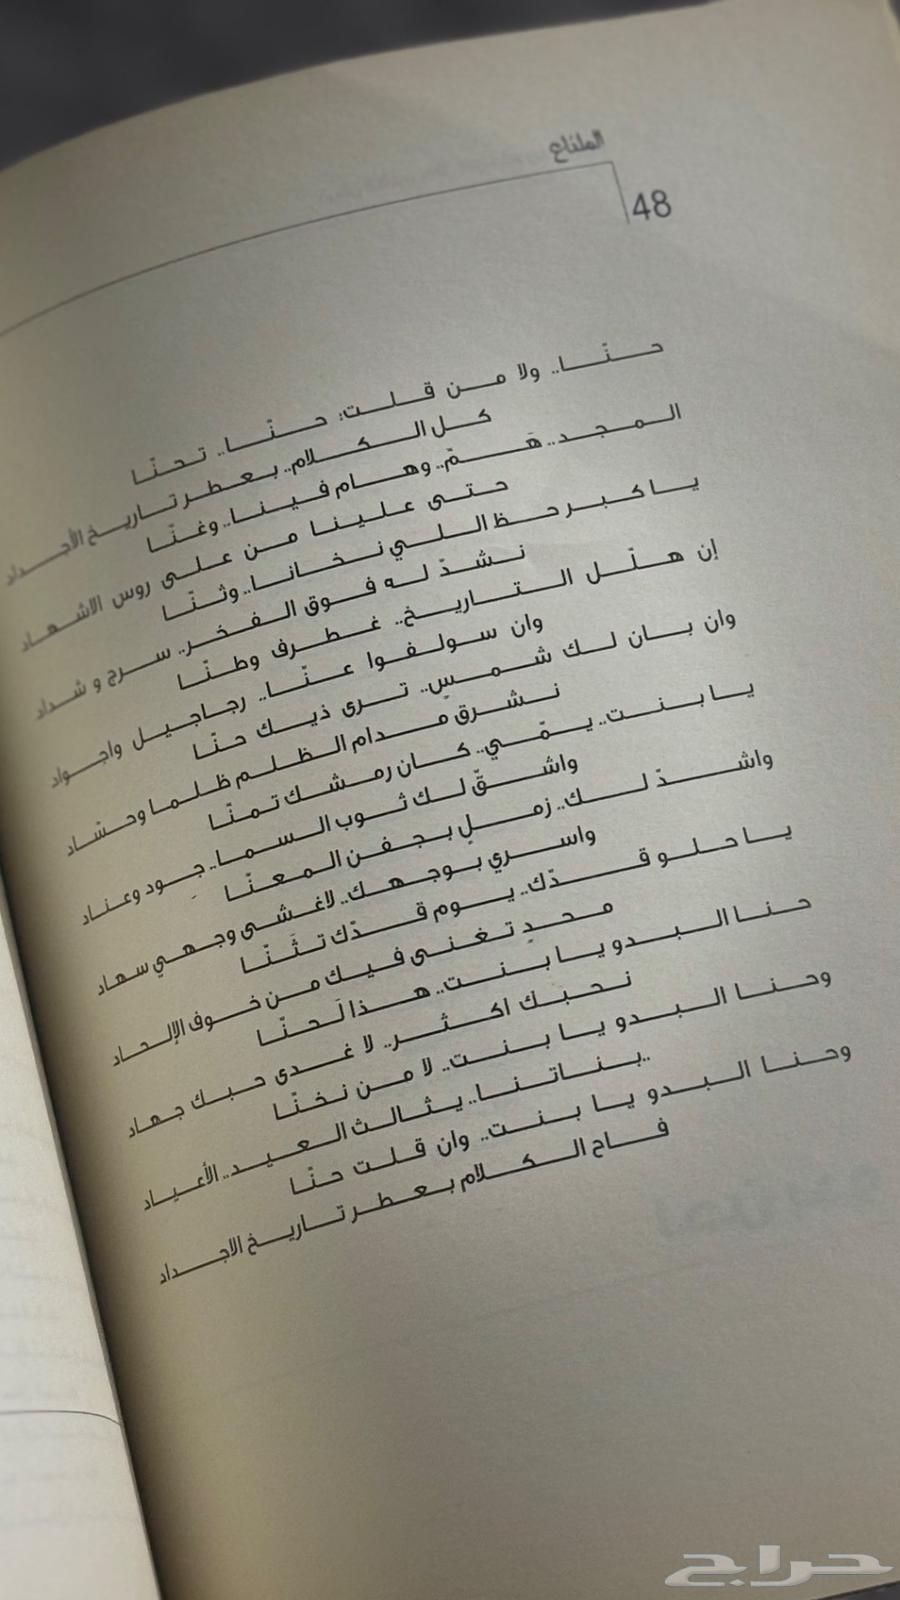 الملتاع
48
حنّا.. ولا من قلت: حنّا.. تحنّا
كل الكلام.. بعطر تاريخ الأجداد
المجد.. هَمّ.. وهام فينا.. وغنّا
حتى علينا من على روس الاشهاد
يا كبر حظ اللي نخانا.. وثنّا
نشدّ له فوق الفخر.. سرج و شداد
إن هلّل التاريخ.. غطرف وطنّا
وان سولفوا عنّا.. رجاجيل واجواد
وان بان لك شمسٍ.. ترى ذيك حنّا
نشرق مدام الظلم ظلما وحسّاد
يا بنت.. يمّي.. كان رمشك تمنّا
واشقّ لك ثوب السما.. جود وعناد
واشدّ لك.. زملٍ بجفن المعنّا
واسري بوجهك.. لاغشى وجهي سهاد
يا حلو قدّك.. يوم قدّك تثَنّا
محدٍ تغنى فيك من خوف الإلحاد
حنا البدو يا بنت.. هذا لَحنّا
نحبك اكثر.. لا غدى حبك جهاد
وحنا البدو يا بنت.. لا من نخنّا
..بناتنا.. يثالث العيد.. الأعياد
وحنا البدو يا بنت.. وان قلت حنّا
فاح الكلام بعطر تاريخ الاجداد
حراج